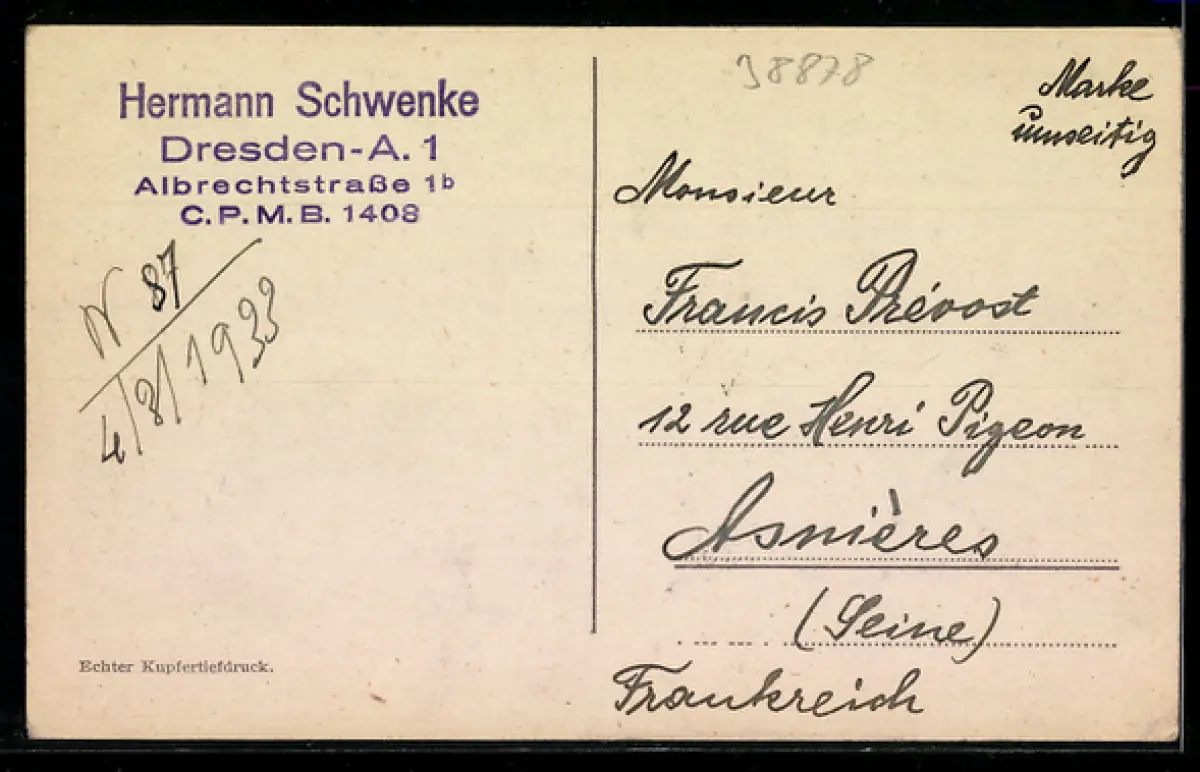 Hermann Schwenke
Dresden-A. 1
Albrechtstraße 1b
C.P.M.B. 1408
N 87
4/8/1933
Echter Kupfertiefdruck.
38878
Marke
umseitig
Monsieur
Francis Prévost
12 rue Henri Pigeon
Asnières
(Seine)
Frankreich